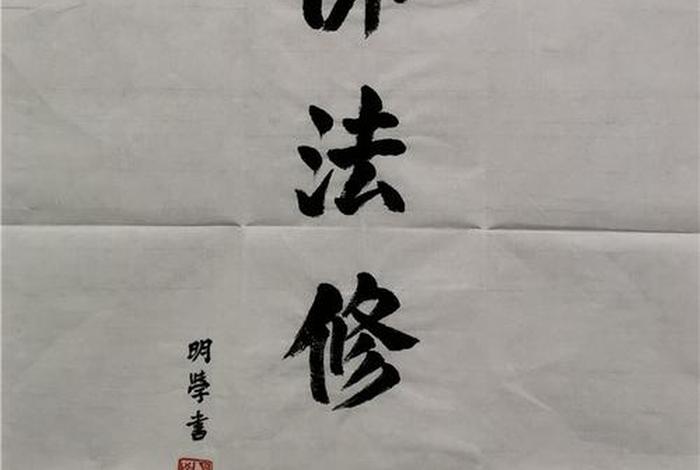 法
修
明學書